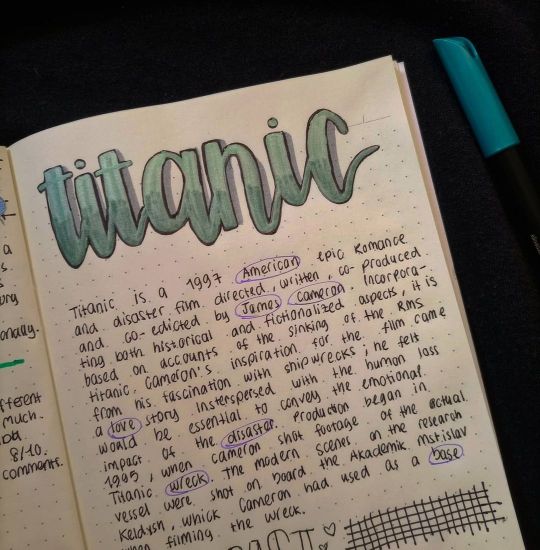 titanic
Titanic is a 1997 American epic Romance
and disaster film directed, written, co-produced
and co-edicted by James Cameron Incorpora-
ting both historical and fictionalized aspects, it is
based on accounts of the sinking of the RMS
titanic, Cameron's inspiration for the film came
from his fascination with shipwrecks; he felt
a love story Insterspersed with the human loss
would be essential to convey the emotional
impact of the disaster. Production began in
1995, when cameron shot footage of the actual
Titanic wreck. The modern scenes on the research
vessel were shot on board the Akademik Mstislav
Keldysh, which Cameron had used as a base
when filming the wreck.
a
s.
ory
onally.
fferent
much.
8/10.
comments.